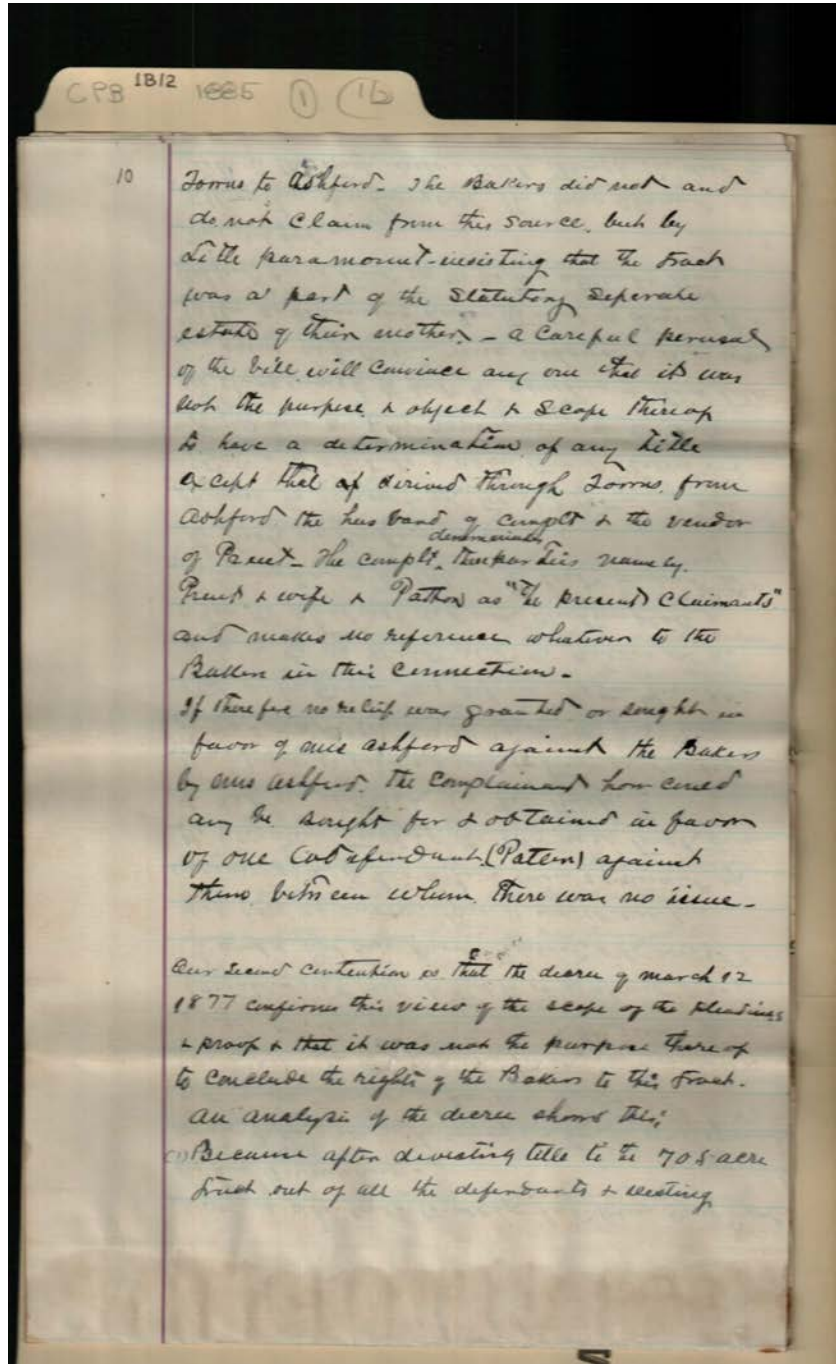 CPB 1B12 1885 1 (1b
10
Torrns to Ashford - The Bakers did not and
do not claim from this source, but by
title paramount - insisting that the tract
was a part of the Statutory Seperate
estate of their mother. - a careful perusal
of the bill will convince any one that it was
not the purpose & object & scope thereof
to have a determination of any title
except that of dirived through Torrns from
Ashford the husband of complt & the vendor
of Pruet - The complt denominates
three parties namely.
Pruet & wife & Patton as "The present Claimants"
and makes no reference whatever to the
Bakers in this connection -
If therefore no relief was granted or sought in
favor of mrs Ashford against the Bakers
by mrs Ashford, the complainant how could
any be sought for & obtained in favor
of one Codefendant (Patton) against
them between whom there was no issue -
Our second contention is that the decree of march 12
1877 confirms this view of the scope of the pleadings
& proof & that it was not the purpose thereof
to conclude the rights of the Bakers to this tract.
an analysis of the decree shows this;
(1) Because after divesting title to the 705 acre
tract out of all the defendants & vesting